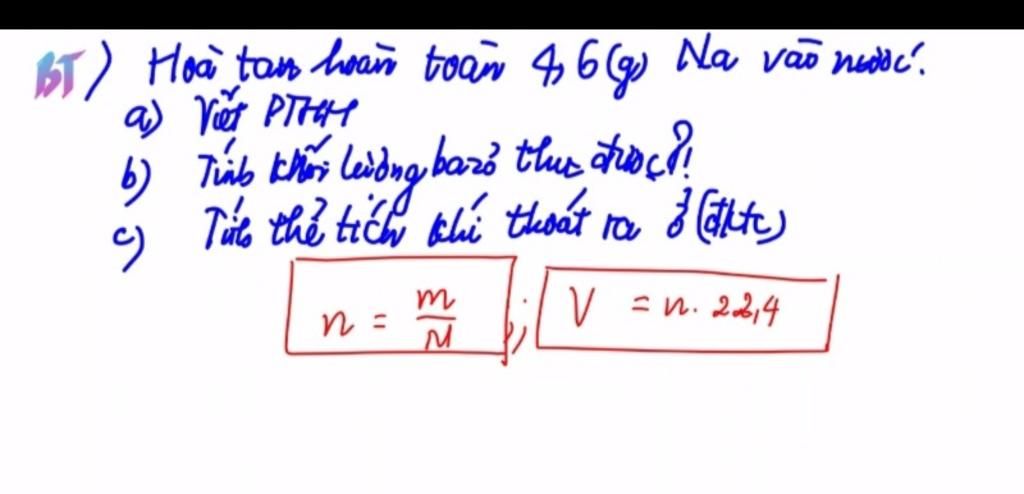 BT) Hoà tan hoàn toàn 4,6(g) Na vào nước.
a) Viết PTHH
b) Tính khối lượng bazơ thu được?
c) Tính thể tích khí thoát ra ở (đktc)
n = m/M ; V = n. 22,4